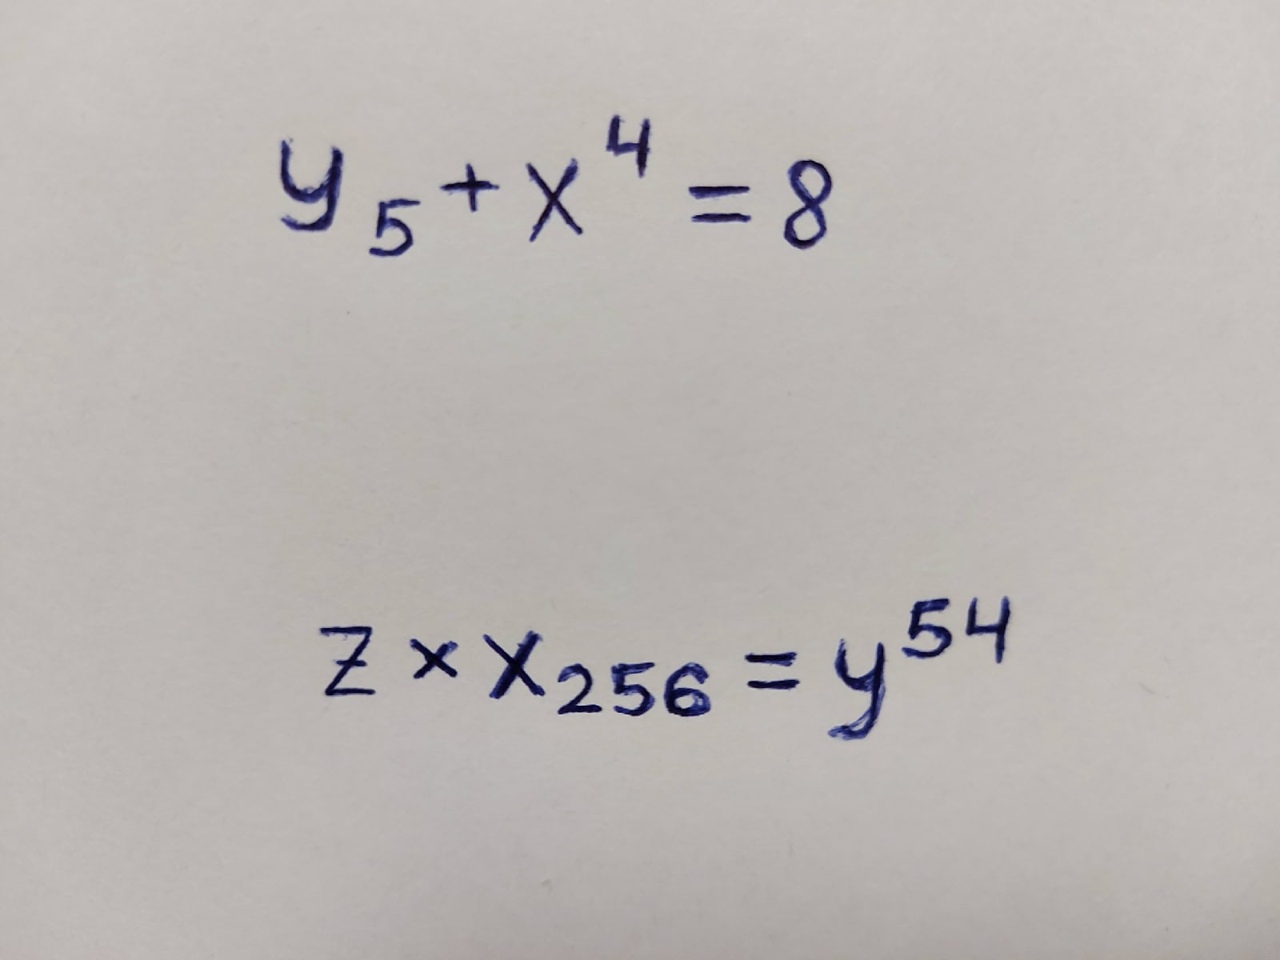 y₅ + x⁴ = 8
z × x₂₅₆ = y⁵⁴